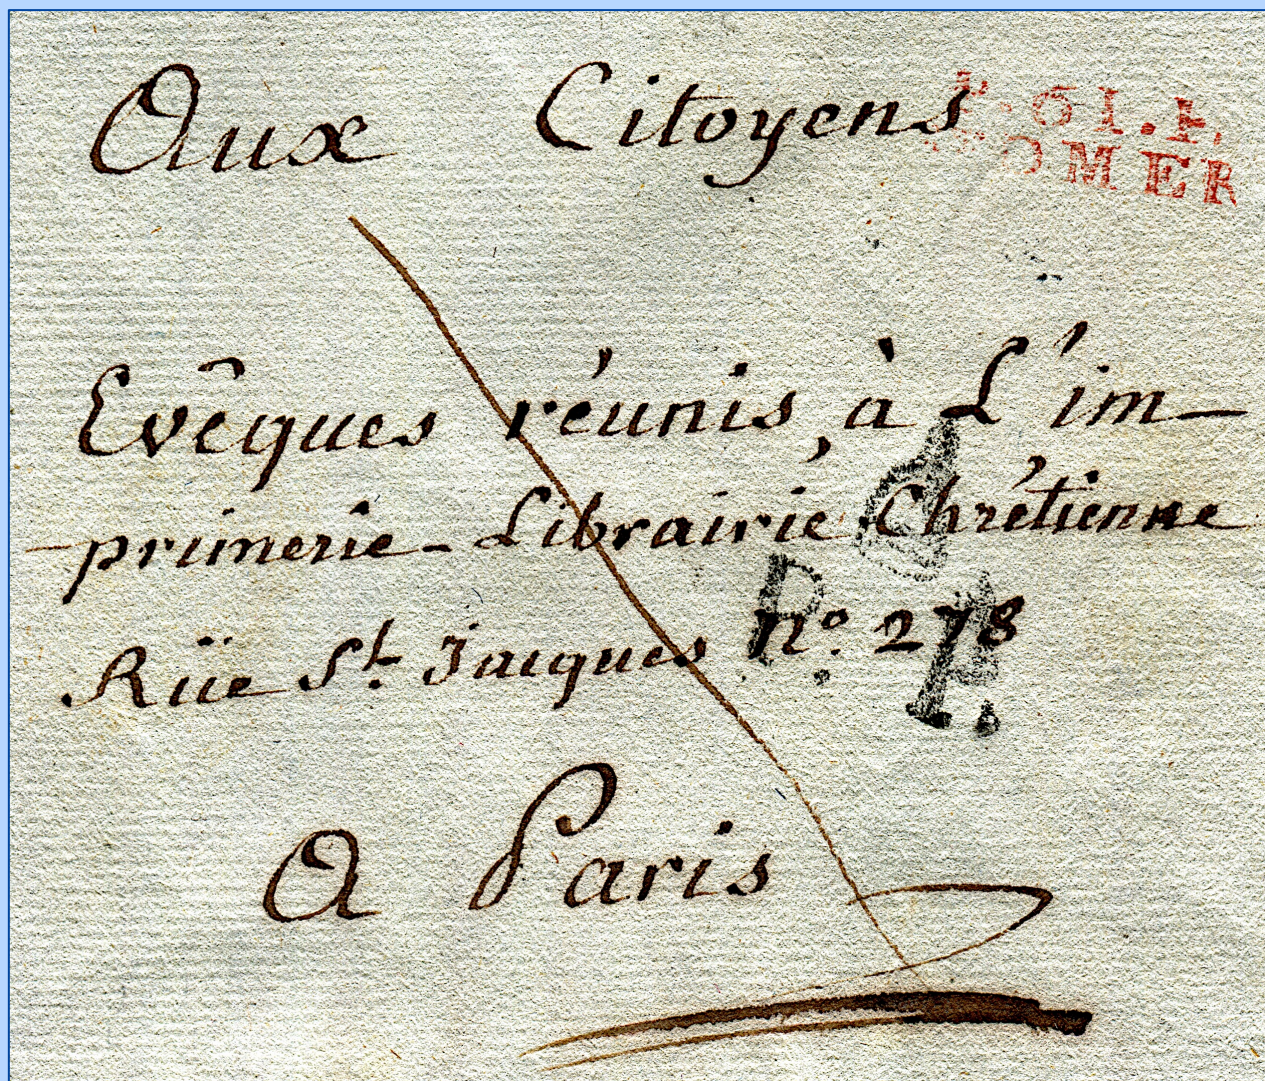 Aux Citoyens
P.61.P.
OMER
Evêques réunis, à L'im-
primerie-Librairie Chrétienne
Rüe St. Jacques no. 278
P. P.
A Paris